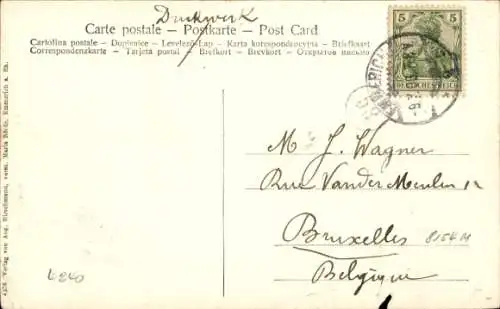 Druckwerk
Carte postale – Postkarte – Post Card
Cartolina postale – Dopisnice – Levelező-Lap – Karta korespondencyjna – Briefkaart
Correspondenzkarte – Tarjeta postal – Brefkort – Brevkort – Открытое письмо
5 5
M J. Wagner
Rue Vander Meulen 12
Bruxelles 8154 M
Belgique
4240
Verlag von Aug. Hirschmann, verm. Maria Emmerich a. Rh.